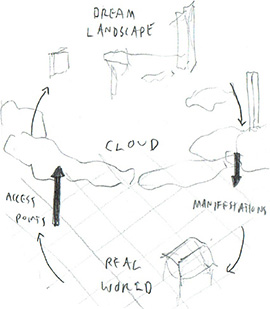 DREAM
LANDSCAPE
CLOUD
ACCESS
POINTS
MANIFESTATIONS
REAL
WORLD